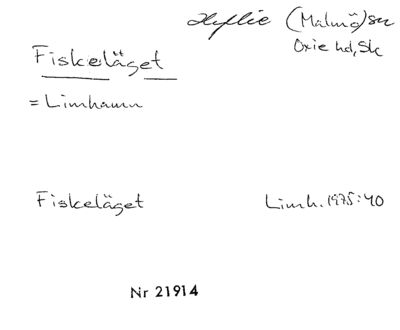 Hyllie (Malmö) sn
Oxie hd, Sk
Fiskeläget
= Limhamn
Fiskeläget Limh. 1975:40
Nr 21914